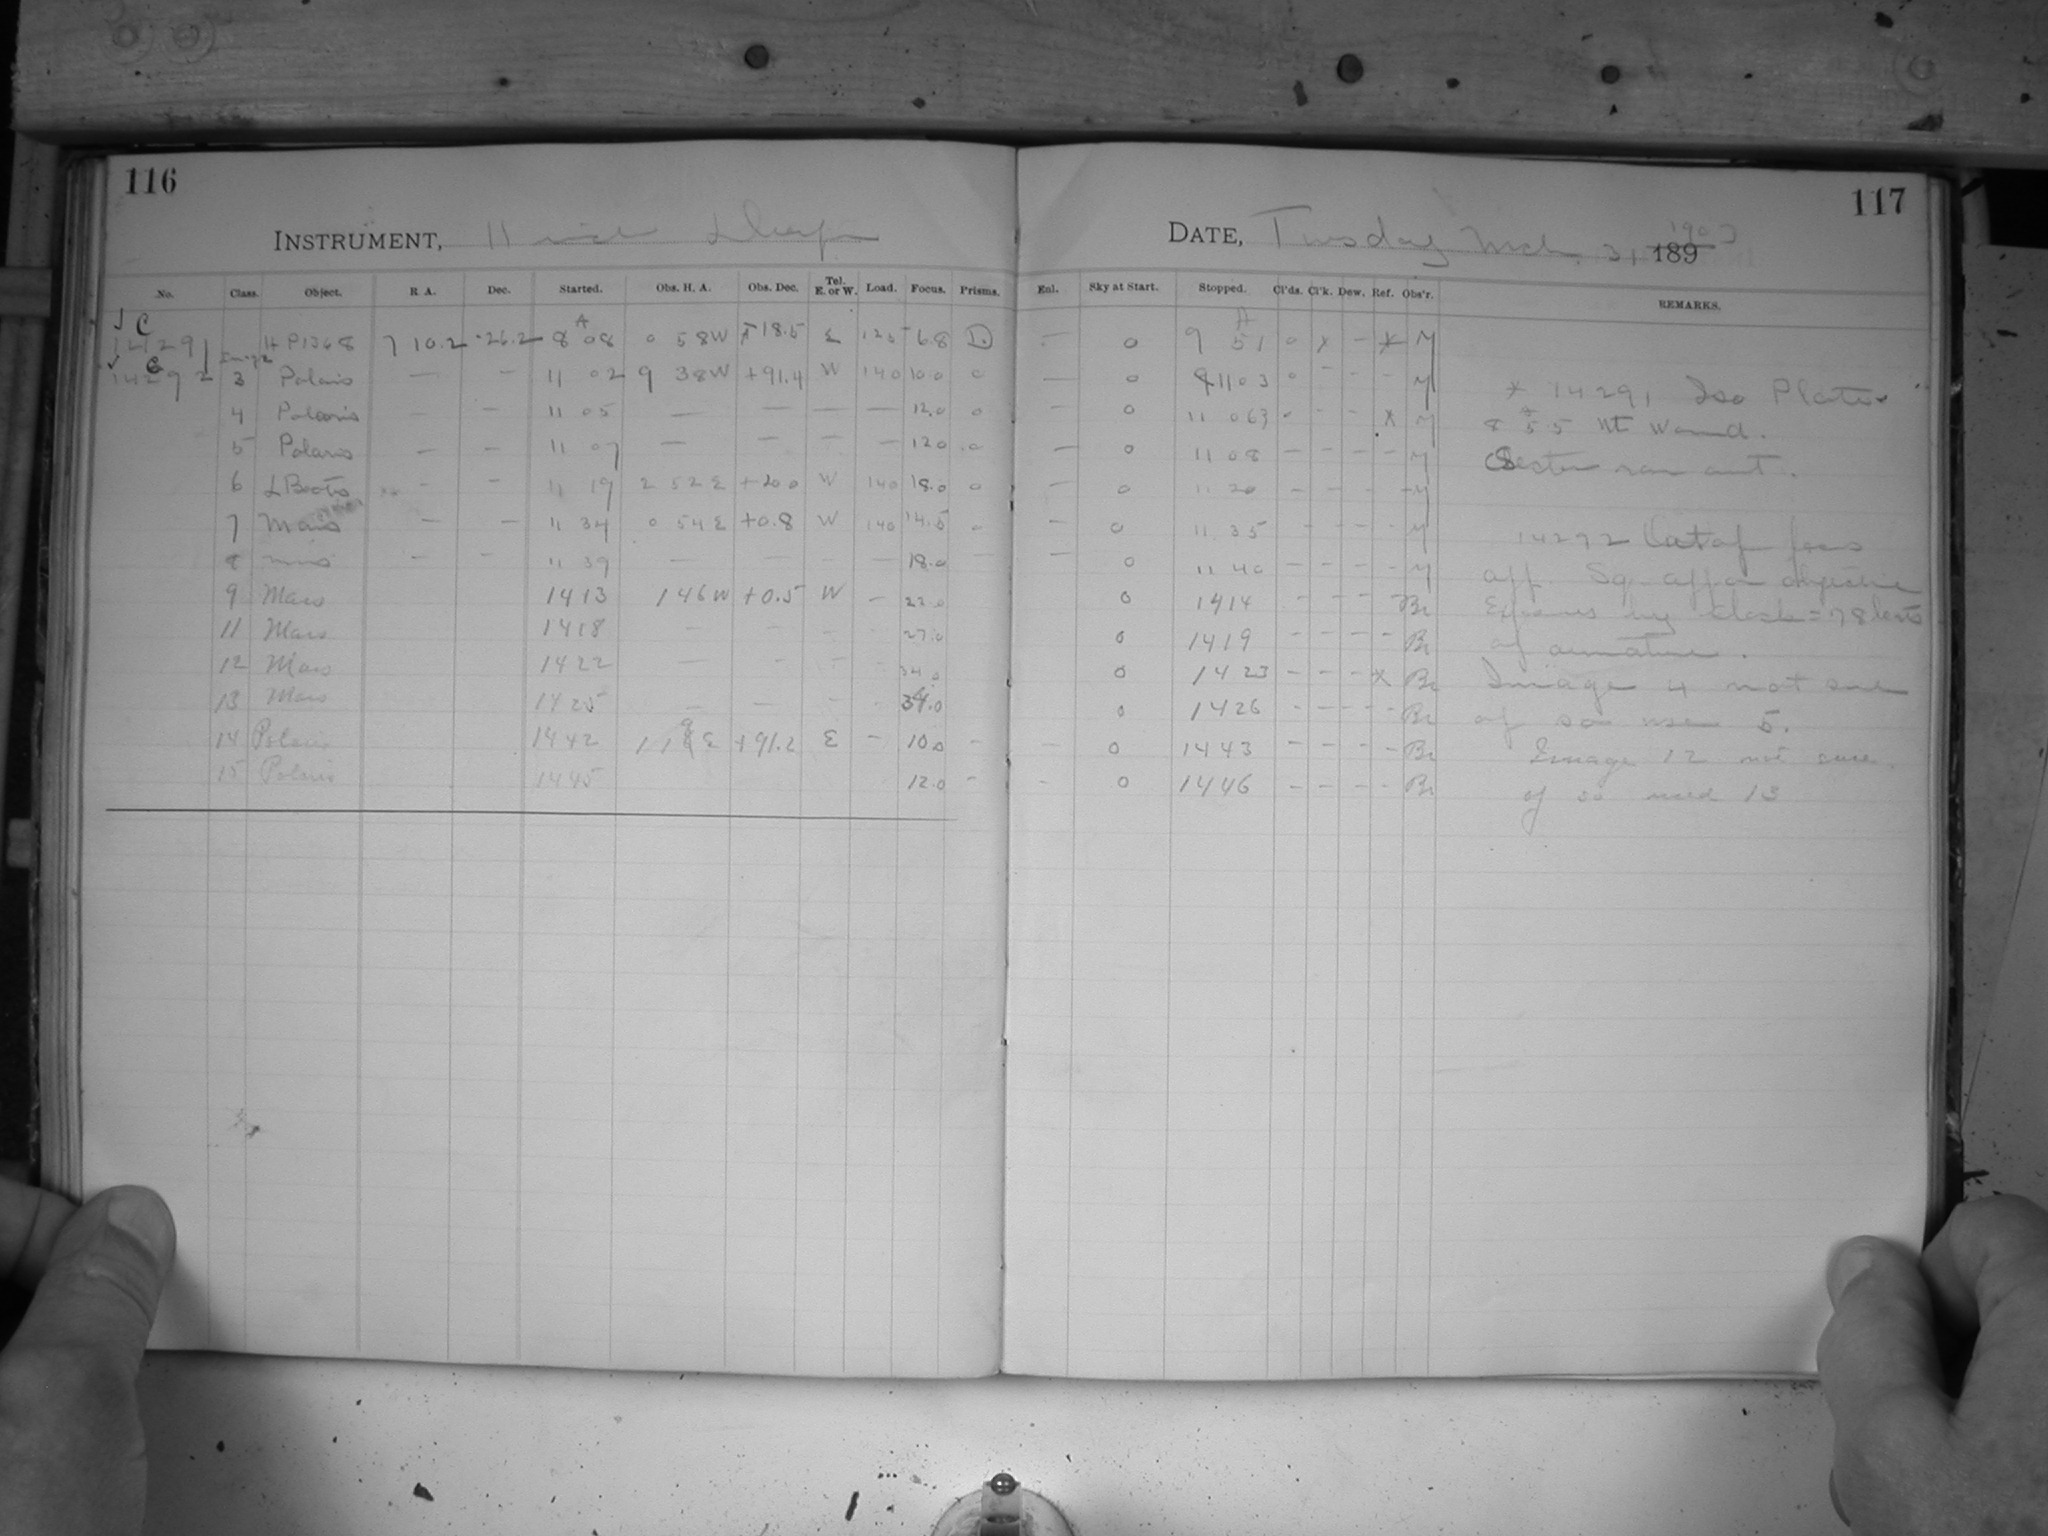 116
INSTRUMENT, 11 inch Draper
No. Class. Object. R. A. Dec. Started. Obs. H. A. Obs. Dec. Tel. E. or W. Load. Focus. Prisms.
J C
14291 H P1368 7 10.2 -26.2 8 08 0 58W 18.5 E 125 6.8 D
14292 3 Polaris — — 11 02 9 38W +91.4 W 140 10.0 0
4 Polaris — — 11 05 — — — — 12.0 0
5 Polaris — — 11 07 — — — — 12.0 0
6 Boots — — 11 19 2 52 E +20.0 W 140 18.0 0
7 Mars — — 11 34 0 54 E +0.8 W 140 14.5 0
8 — — 11 39 — — — — 18.0 —
9 Mars 14 13 1 46W +0.5 W — 22.0
11 Mars 14 18 — — — — 27.0
12 Mars 14 22 — — — — 34.0
13 Mars 14 25 — — — — 34.0
14 Polaris 14 42 E +91.2 E — 10.0 —
15 Polaris 14 45 12.0 —
117
DATE, Tuesday Mch. 31 189 1903
Enl. Sky at Start. Stopped. Cl'ds. Cl'k. Dew. Ref. Obs'r. REMARKS.
— 0 9 51 0 x — x M
— 0 11 03 0 — — — M * 14291 Iso Plate
— 0 11 06 — — — x M 8 55 Wt Wound.
— 0 11 08 — — — — M Sector ran out.
— 0 11 20 — — — — M
— 0 11 35 — — — — M 14292
— 0 11 40 — — — — M app. Sq. app on objective
0 14 14 — — — — Br by clock = 78 beats
0 14 19 — — — — Br of armature.
0 14 23 — — — x Br Image 4 not sure
0 14 26 — — — — Br of so use 5.
— 0 14 43 — — — — Br Image 12 not sure
— 0 14 46 — — — — Br of so used 13